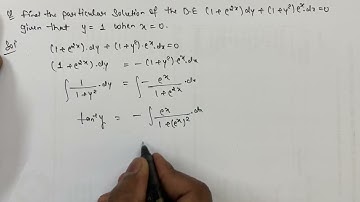 Q Find the particular solution of the D.E (1+e^{2x})dy + (1+y²)e^x.dx=0
given that y = 1 when x = 0.
Sol (1+e^{2x}).dy + (1+y²).e^x.dx=0
(1+e^{2x}).dy = -(1+y²)e^x.dx
∫ 1/(1+y²) .dy = ∫ - e^x/(1+e^{2x}) .dx
tan⁻¹y = - ∫ e^x/(1+(e^x)²) .dx